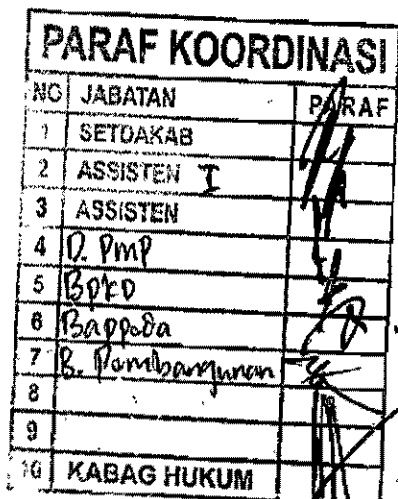 PARAF KOORDINASI
NO JABATAN PARAF
1 SETDAKAB
2 ASSISTEN I
3 ASSISTEN
4 D. PMP
5 BPKD
6 Bappeda
7 B. Pembangunan
8
9
10 KABAG HUKUM